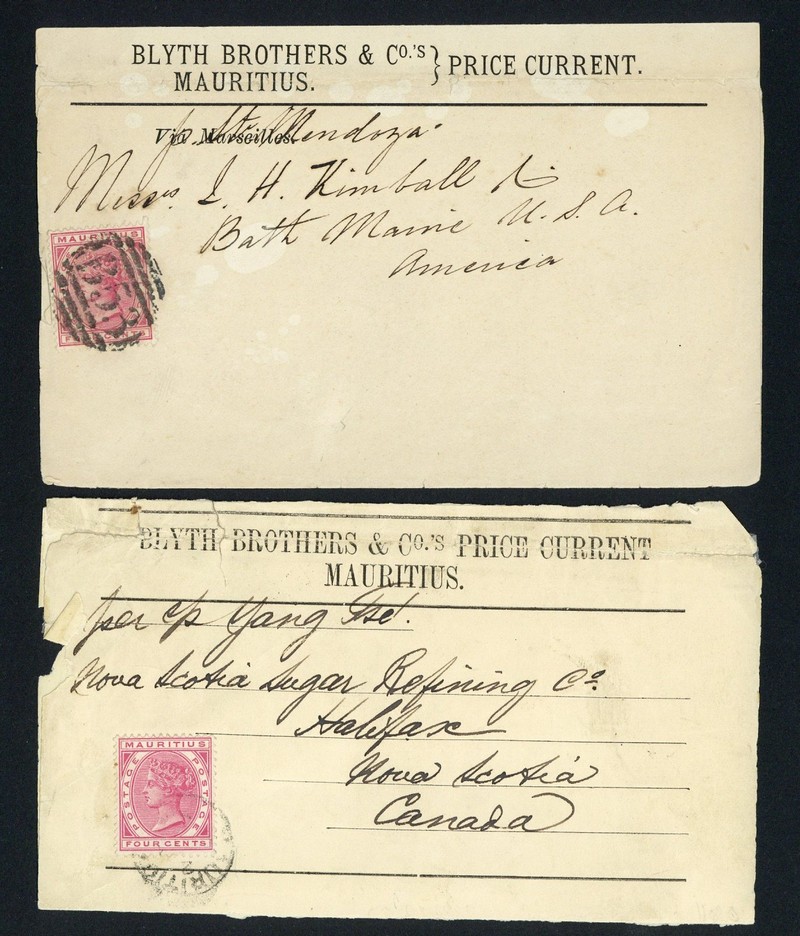 BLYTH BROTHERS & Co.'s } PRICE CURRENT.
MAURITIUS.
Via Marseilles.
p. Str. Mendoza
Messrs. I. H. Kimball &
Bath Maine U. S. A.
America
MAURITIUS
B53
FOUR CENTS
BLYTH BROTHERS & Co.'s PRICE CURRENT
MAURITIUS.
per Yang Tse.
Nova Scotia Sugar Refining Co.
Halifax
Nova Scotia
Canada
MAURITIUS
POSTAGE
POSTAGE
FOUR CENTS